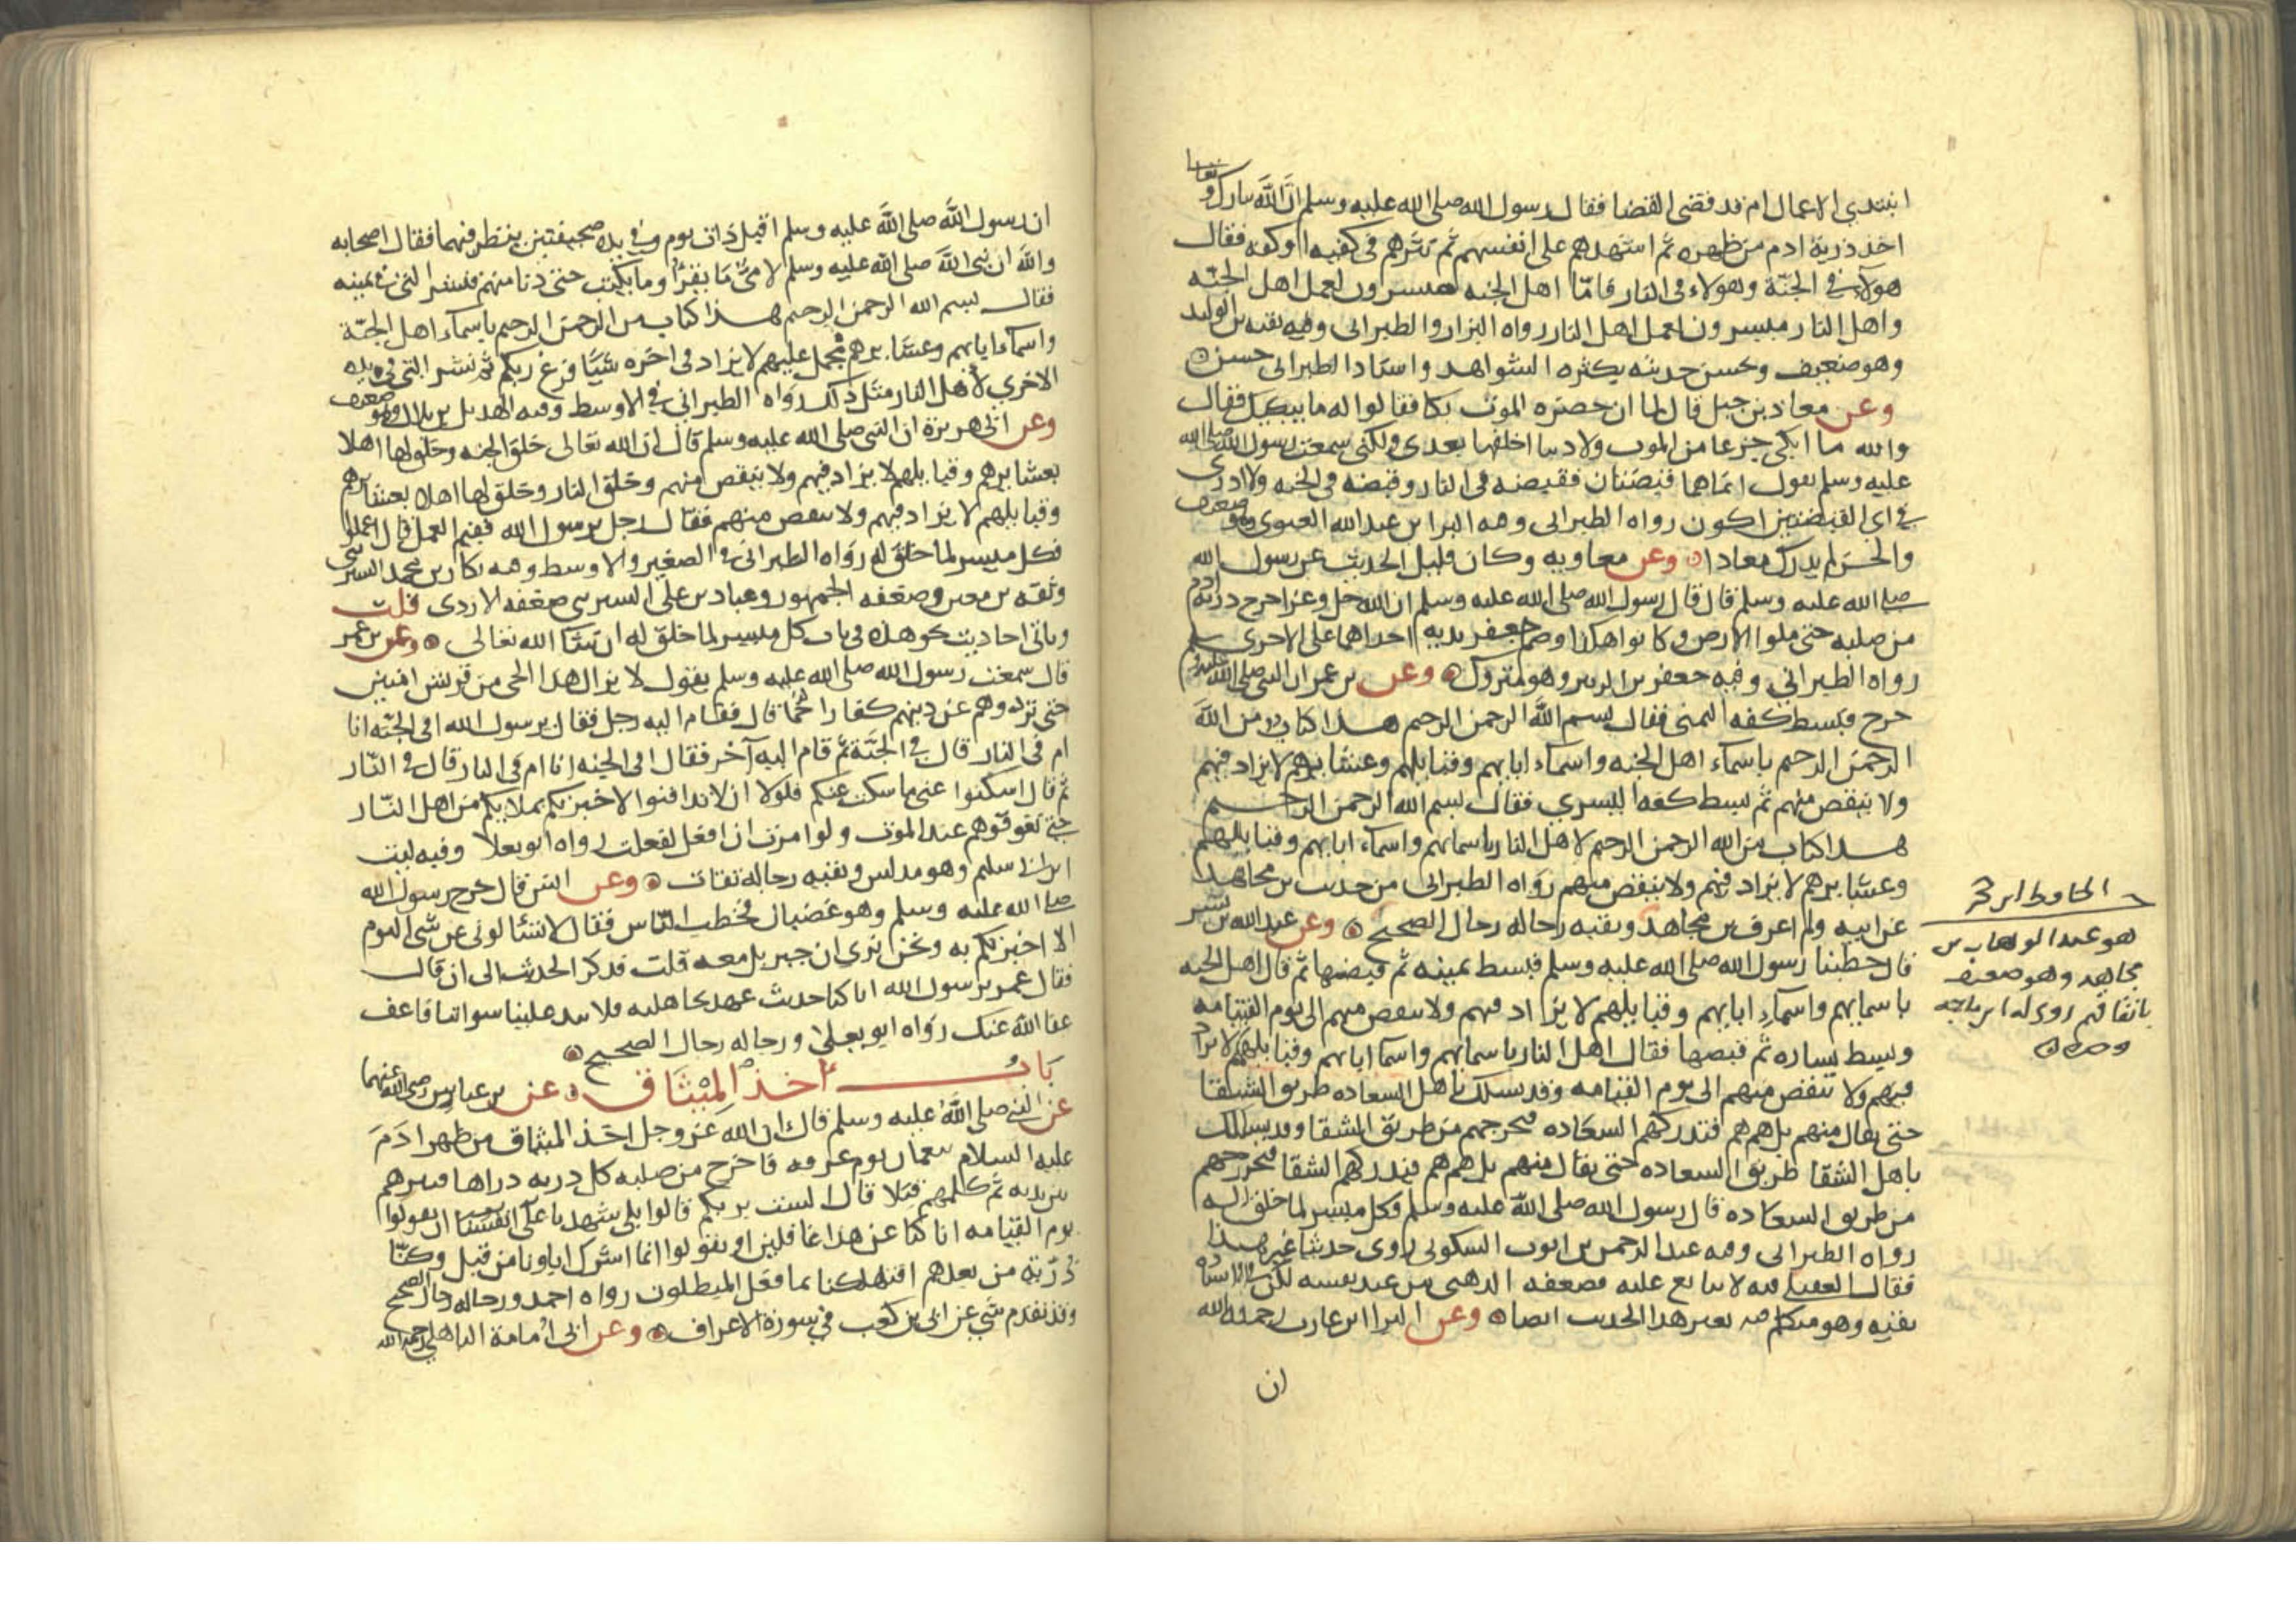 وتعالى
ابتدي الاعمال ام قد قضى القضا فقال رسول الله صلى الله عليه وسلم ان الله تبارك
اخذ ذرية ادم من ظهره ثم اشهدهم على انفسهم ثم نثرهم فى كفيه او كفه فقال
هولاء في الجنة وهولاء فى النار فامّا اهل الجنه فميسرون لعمل اهل الجنّه
واهل النار ميسرون لعمل اهل النار رواه البزار والطبرانى وفيه بقيه بن الوليد
وهو ضعيف ويحسن حديثه بكثره الشواهد واسناد الطبرانى حسن
وعن معاذ بن جبل قال لما ان حضره الموت بكا فقالوا له ما يبكيك فقال
والله ما ابكى جزعا من الموت ولا دنيا اخلفها بعدى ولكنى سمعت رسول الله صلى الله
عليه وسلم يقول انما هما قبضتان فقبضه فى النار وقبضه فى الجنه ولا ادرى
في اى القبضتين اكون رواه الطبرانى وفيه البرا بن عبد الله الغنوى وهو ضعيف
والحسن لم يدرك معاذا وعن معاويه وكان قليل الحديث عن رسول الله
صلى الله عليه وسلم قال قال رسول الله صلى الله عليه وسلم ان الله جل وعز اخرج ذرية ادم
من صلبه حتى ملوا الارض وكانوا هكذا وضم جعفر يديه احداهما على الاخرى
رواه الطبراني وفيه جعفر بن الزبير وهو متروك وعن بن عمر ان النبى صلى الله عليه وسلم
خرج فبسط كفه اليمنى فقال بسم الله الرحمن الرحيم هذا كتاب من الله
الرحمن الرحيم باسماء اهل الجنه واسماء ابايهم وقبايلهم وعشايرهم لا يزاد فيهم
ولا ينقص منهم ثم بسط كفه اليسرى فقال بسم الله الرحمن الرحيم
هذا كتاب من الله الرحمن الرحيم لاهل النار باسمايهم واسماء ابايهم وقبايلهم
وعشايرهم لا يزاد فيهم ولا ينقص منهم رواه الطبرانى من حديث بن مجاهد
عن ابيه ولم اعرف بن مجاهد وبقيه رجاله رجال الصحيح وعن عبد الله بن بسر
قال خطبنا رسول الله صلى الله عليه وسلم فبسط يمينه ثم قبضها ثم قال اهل الجنه
باسمايهم واسماء ابايهم وقبايلهم لا يزاد فيهم ولا ينقص منهم الى يوم القيامه
وبسط يساره ثم قبضها فقال اهل النار باسمايهم واسما ابايهم وقبايلهم لا يزاد
فيهم ولا ينقص منهم الى يوم القيامه وقد يسلك باهل السعاده طريق الشقا
حتى يقال منهم بل هم هم فتدركهم السعاده فتخرجهم من طريق الشقا وقد يسلك
باهل الشقا طريق السعاده حتى يقال منهم بل هم هم فيدركهم الشقا فيخرجهم
من طريق السعاده قال رسول الله صلى الله عليه وسلم فكل ميسر لما خلق له
رواه الطبرانى وفيه عبد الرحمن بن ايوب السكونى روى حديثا غير هذا
فقال العقيلى فيه لا يتابع عليه فضعفه الذهبى من عند نفسه لكن فى اسناده
بقيه وهو متكلم فيه بغير هذا الحديث ايضا وعن البرا ابن عازب رحمه الله
ان
الحافظ ابن حجر
هو عبد الوهاب بن
مجاهد وهو ضعيف
باتفاقهم روى له ابن ماجه
ان رسول الله صلى الله عليه وسلم اقبل ذات يوم وفي يده صحيفتين ينظر فيهما فقال اصحابه
والله ان نبى الله صلى الله عليه وسلم لامىّ ما يقرأ وما يكتب حتى دنا منهم فنشر التى فى يمينه
فقال بسم الله الرحمن الرحيم هذا كتاب من الرحمن الرحيم باسماء اهل الجنّة
واسماء ابايهم وعشايرهم مجمل عليهم لا يزاد فى اخره شيئا فرغ ربكم ثم نشر التى فى يده
الاخرى لاهل النار مثل ذلك رواه الطبرانى في الاوسط وفيه الهذيل بن بلال وهو ضعيف
وعن ابى هريرة ان النبى صلى الله عليه وسلم قال ان الله تعالى خلق الجنه وخلق لها اهلا
بعشايرهم وقبايلهم لا يزاد فيهم ولا ينقص منهم وخلق النار وخلق لها اهلا بعشايرهم
وقبايلهم لا يزاد فيهم ولا ينقص منهم فقال رجل يرسول الله ففيم العمل قال اعملوا
فكل ميسر لما خلق له رواه الطبرانى فى الصغير والاوسط وفيه بكار بن محمد السيرينى
وثقه بن معين وضعفه الجمهور وعباد بن على السيرينى ضعفه الازدى قلت
وياتى احاديث نحو هذه فى باب كل ميسر لما خلق له ان شا الله تعالى وعن بن عمر
قال سمعت رسول الله صلى الله عليه وسلم يقول لا يزال هذا الحى من قريش امنين
حتى تردوهم عن دينهم كفارا حمما قال فقام اليه رجل فقال يرسول الله افى الجنّه انا
ام فى النار قال فى الجنّة ثم قام اليه آخر فقال افى الجنه انا ام فى النار قال فى النّار
ثم قال اسكتوا عنى ما سكت عنكم فلولا ان لا تدافنوا لاخبرتكم بملايكم من اهل النّار
حتى تفرقوهم عند الموت ولو امرت ان افعل لفعلت رواه ابو يعلا وفيه ليث
ابن ابى سليم وهو مدلس وبقيه رجاله ثقات وعن انس قال خرج رسول الله
صلى الله عليه وسلم وهو غضبان فخطب النّاس فقال لا تسألونى عن شى اليوم
الا اخبرتكم به ونحن نرى ان جبريل معه قلت فذكر الحديث الى ان قال
فقال عمر يرسول الله انا كنا حديث عهد بجاهليه فلا تبد علينا سواتنا فاعف
عفا الله عنك رواه ابو يعلى ورجاله رجال الصحيح
باب اخذ الميثاق عن بن عباس رضى الله عنهما
عن النبى صلى الله عليه وسلم قال ان الله عز وجل اخذ الميثاق من ظهر ادم
عليه السلام بنعمان يوم عرفه فاخرج من صلبه كل ذريه ذراها فنثرهم
بين يديه ثم كلمهم قبلا قال الست بربكم قالوا بلى شهدنا على انفسنا ان يقولوا
يوم القيامه انا كنا عن هذا غافلين او يقولوا انما اشرك اباونا من قبل وكنّا
ذرّية من بعدهم افتهلكنا بما فعل المبطلون رواه احمد ورجاله رجال الصحيح
وقد تقدم شى عن ابى بن كعب فى سورة الاعراف وعن ابى أمامة الباهلى رحمه الله